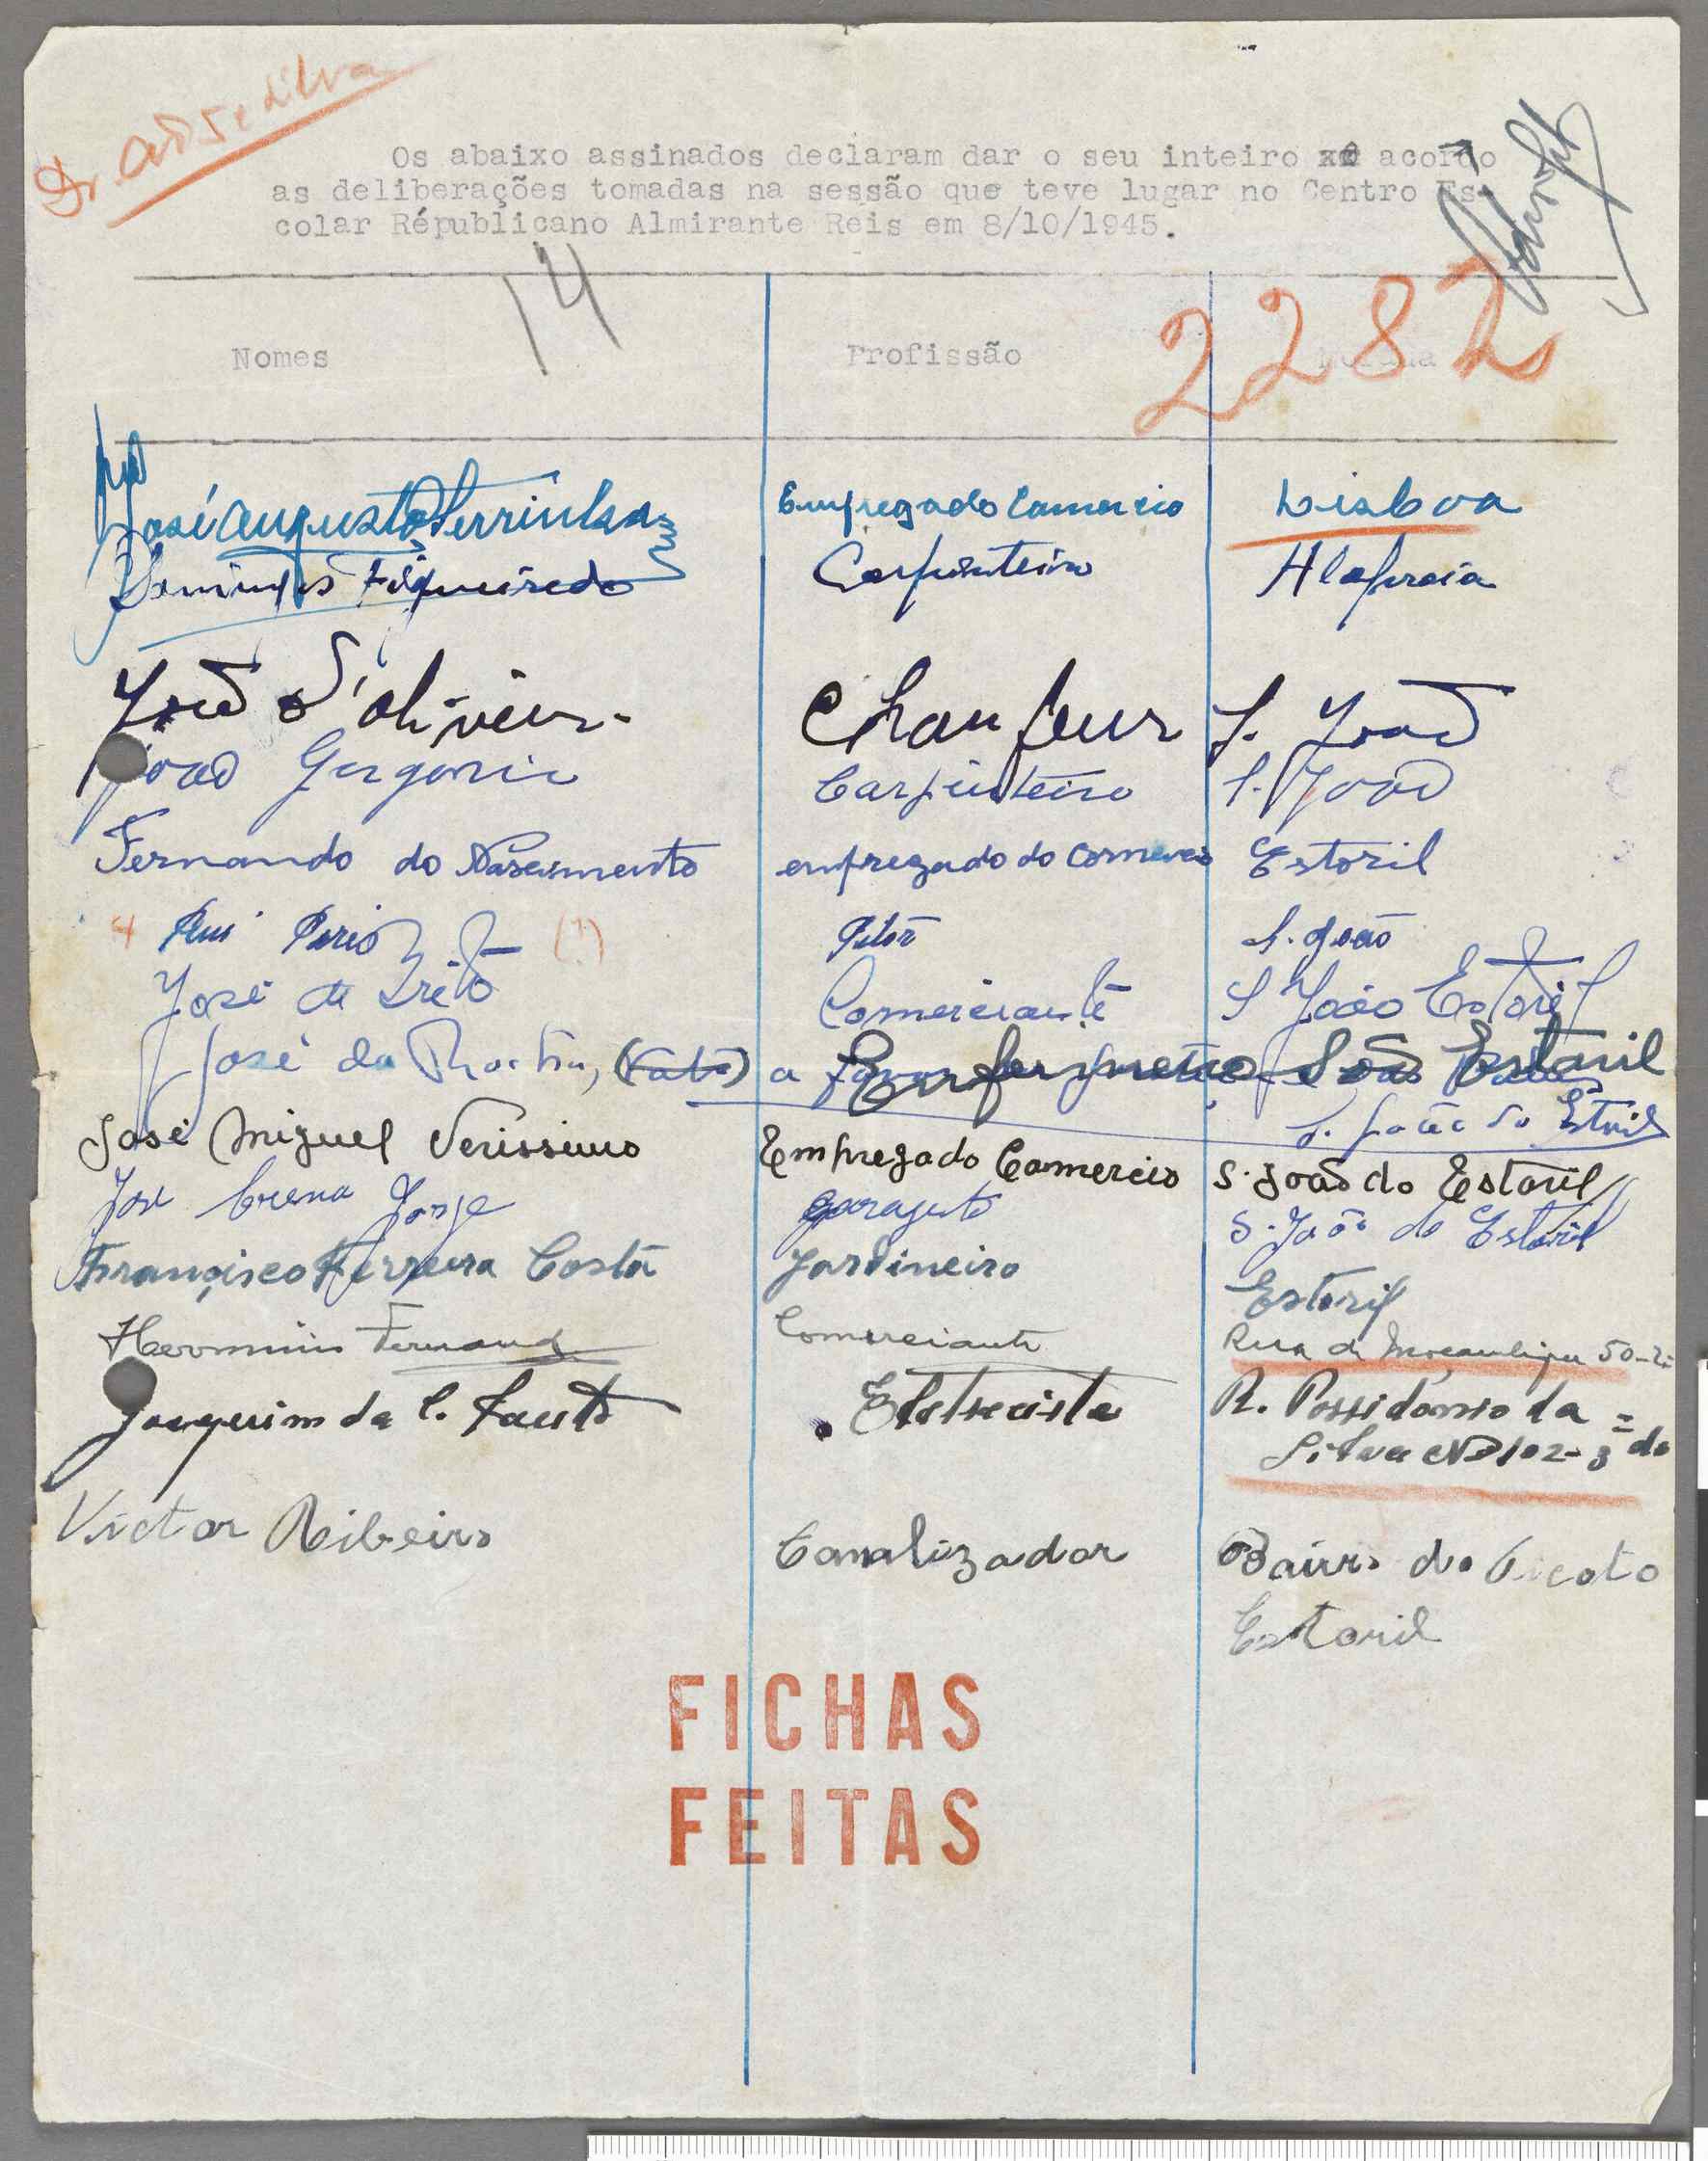 Dr.
Os abaixo assinados declaram dar o seu inteiro acordo
as deliberações tomadas na sessão que teve lugar no Centro Es-
colar Républicano Almirante Reis em 8/10/1945.
14
2282
Nomes Profissão Morada
José Augusto Serrinha Empregado Comercio Lisboa
Domingos Figueiredo Carpinteiro Alapraia
João d'Oliveira Chaufeur S. João
João Gergorio Carpinteiro S. João
Fernando do Nascimento empregado do Comercio Estoril
4 Rui (?) Pitôr S. João
José de Brito Comerciante S João Estoril
José da (Fato) a Estoril
S. João do Estoril
José Miguel Verissimo Empregado Comercio S. João do Estoril
José Jorge S. João do Estoril
Francisco Ferreira Costa Jardineiro Estoril
Herminio Comerciante Rua de Moçambique 50-2º
Joaquim da C. Fausto Eletrecista R. Possidónio da =
Silva Nº 102-3º do
Victor Ribeiro Canalizador Bairro do
Estoril
FICHAS
FEITAS